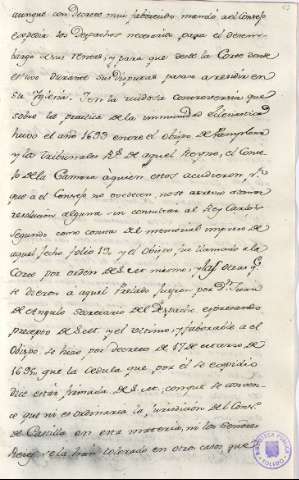 aunque con Decreto mui favorecido mandó al Consejo
expedir los Despachos necesarios para el desem-
bargo de sus rentas, y para que desde la Corte donde
estubo durante sus disputas pasase a residir en
su Iglesia. Y en la ruidosa controversia que
sobre la practica de la immunidad eclesiastica
hubo el año 1693 entre el Obispo de Pamplona
y los Tribunales Rs. de aquel Reyno, el Conse-
jo de la Camara a quien estos acudieron y
que a el Consejo no obedecen, no se atrevio a tomar
resolucion alguna sin consultar al Rey Carlos
segundo como consta del memorial impreso de
aquel fecha folio 13, y el Obispo fue llamado a la
Corte por orden de S. M. mismo; y las otras q.
se dieron a aquel Prelado fueron por Dn. Juan
de Angulo Secretario del Despacho expresando
precepto de S. M. y el ultimo, y favorable a el
Obispo se hizo por decreto de 17 de enero de
1695 que la Cedula que por él se expidio
dice está firmada de S. M., conque se conven-
ce que ni es ordinaria la jurisdicion del Cons.
de Castilla en esta materia, ni los Señores
Reyes se la han tolerado en otros casos que
BIBLIOTECA PUBLICA
TOLEDO